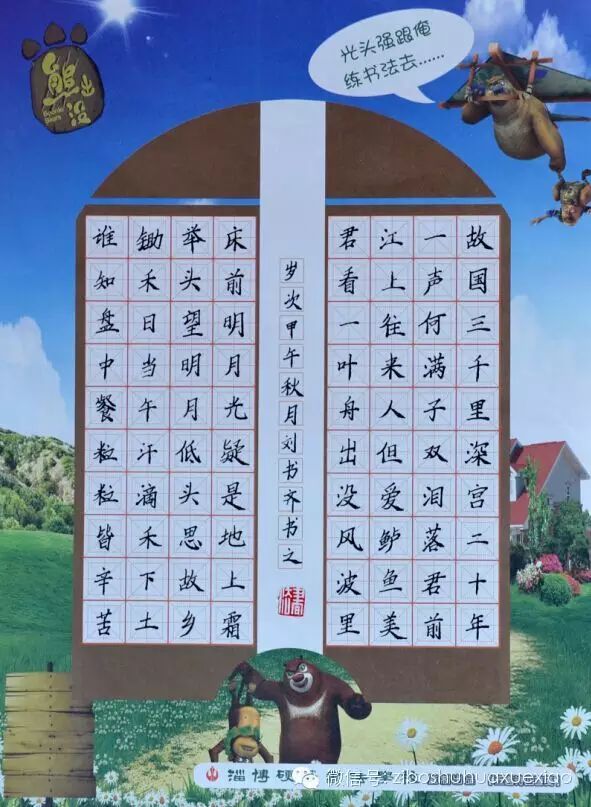 熊出没
Boonie Bears
光头强跟俺
练书法去……
故国三千里深宫二十年
一声何满子双泪落君前
江上往来人但爱鲈鱼美
君看一叶舟出没风波里
岁次甲午秋月刘书齐书之
床前明月光疑是地上霜
举头望明月低头思故乡
锄禾日当午汗滴禾下土
谁知盘中餐粒粒皆辛苦
淄博硬
微信号: ziboshuhuaxuexiao